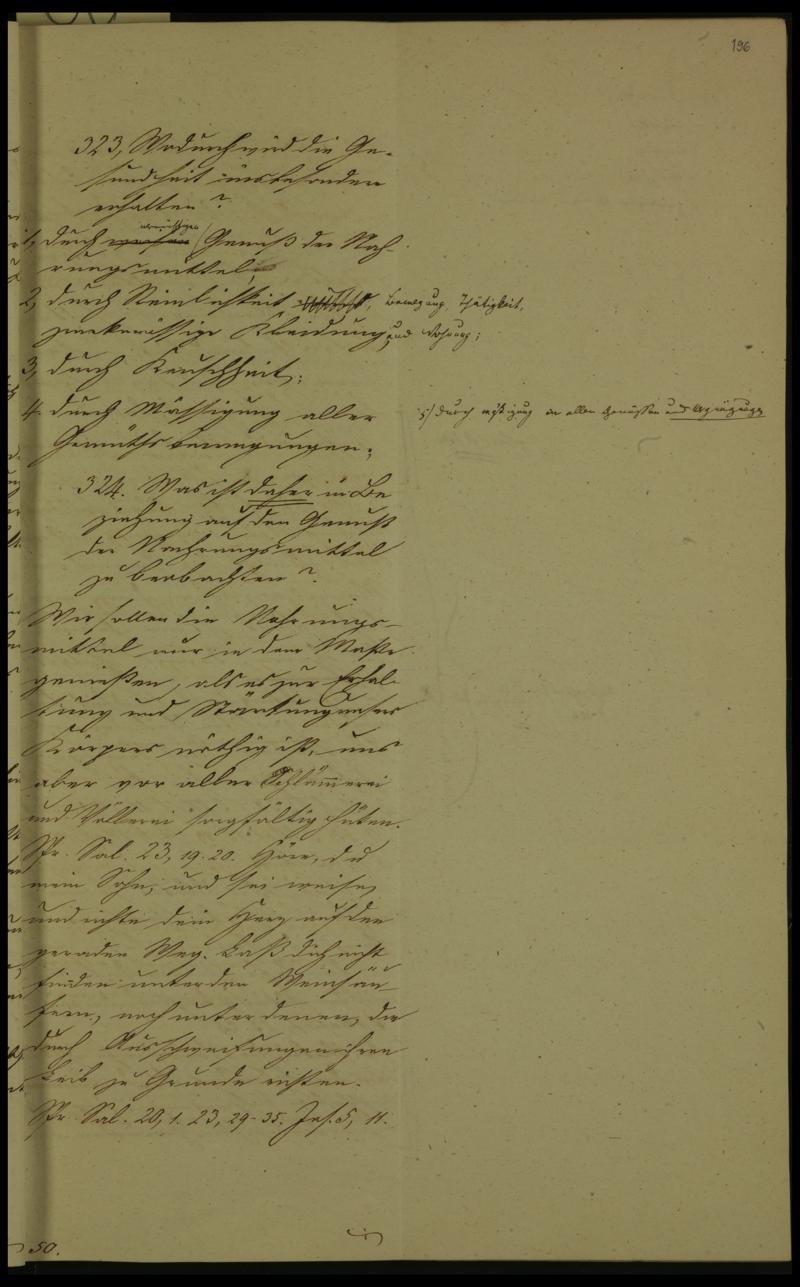 196
323, Wodurch wird die Ge-
sundheit insbesondere
erhalten?
1, durch Genuß der Nah-
rungsmittel;
2, durch Reinlichkeit, Bewegung, Thätigkeit,
zweckmässige Kleidung, und Wohnung;
3, durch Keuschheit;
4. durch Mässigung aller
Gemüthsbewegungen;
5/ durch in allen Genüssen und
324. Was ist daher in Be
ziehung auf den Genuß
der Nahrungsmittel
zu beobachten?
Wir sollen die Nahrungs-
mittel nur in dem Maße
genießen, als es zur Erhal-
tung und Stärkung unsers
Körpers nöthig ist, uns
aber vor aller Schlämmerei
und Völlerei sorgfältig hüten.
Spr. Sal. 23, 19. 20. Höre, du
mein Sohn, und sei weise,
und richte dein Herz auf den
geraden Weg. Laß dich nicht
finden unter den Weinsäu
fern, noch unter denen, die
durch Ausschweifungen ihren
Leib zu Grunde richten.
Spr. Sal. 20, 1. 23, 29-35. Jes. 5, 11.
50.